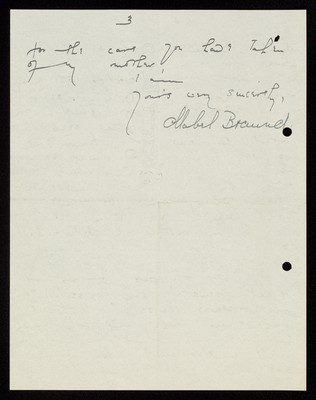 3
for the care you have taken
of my mother.
I am
Yours very sincerely,
Mabel